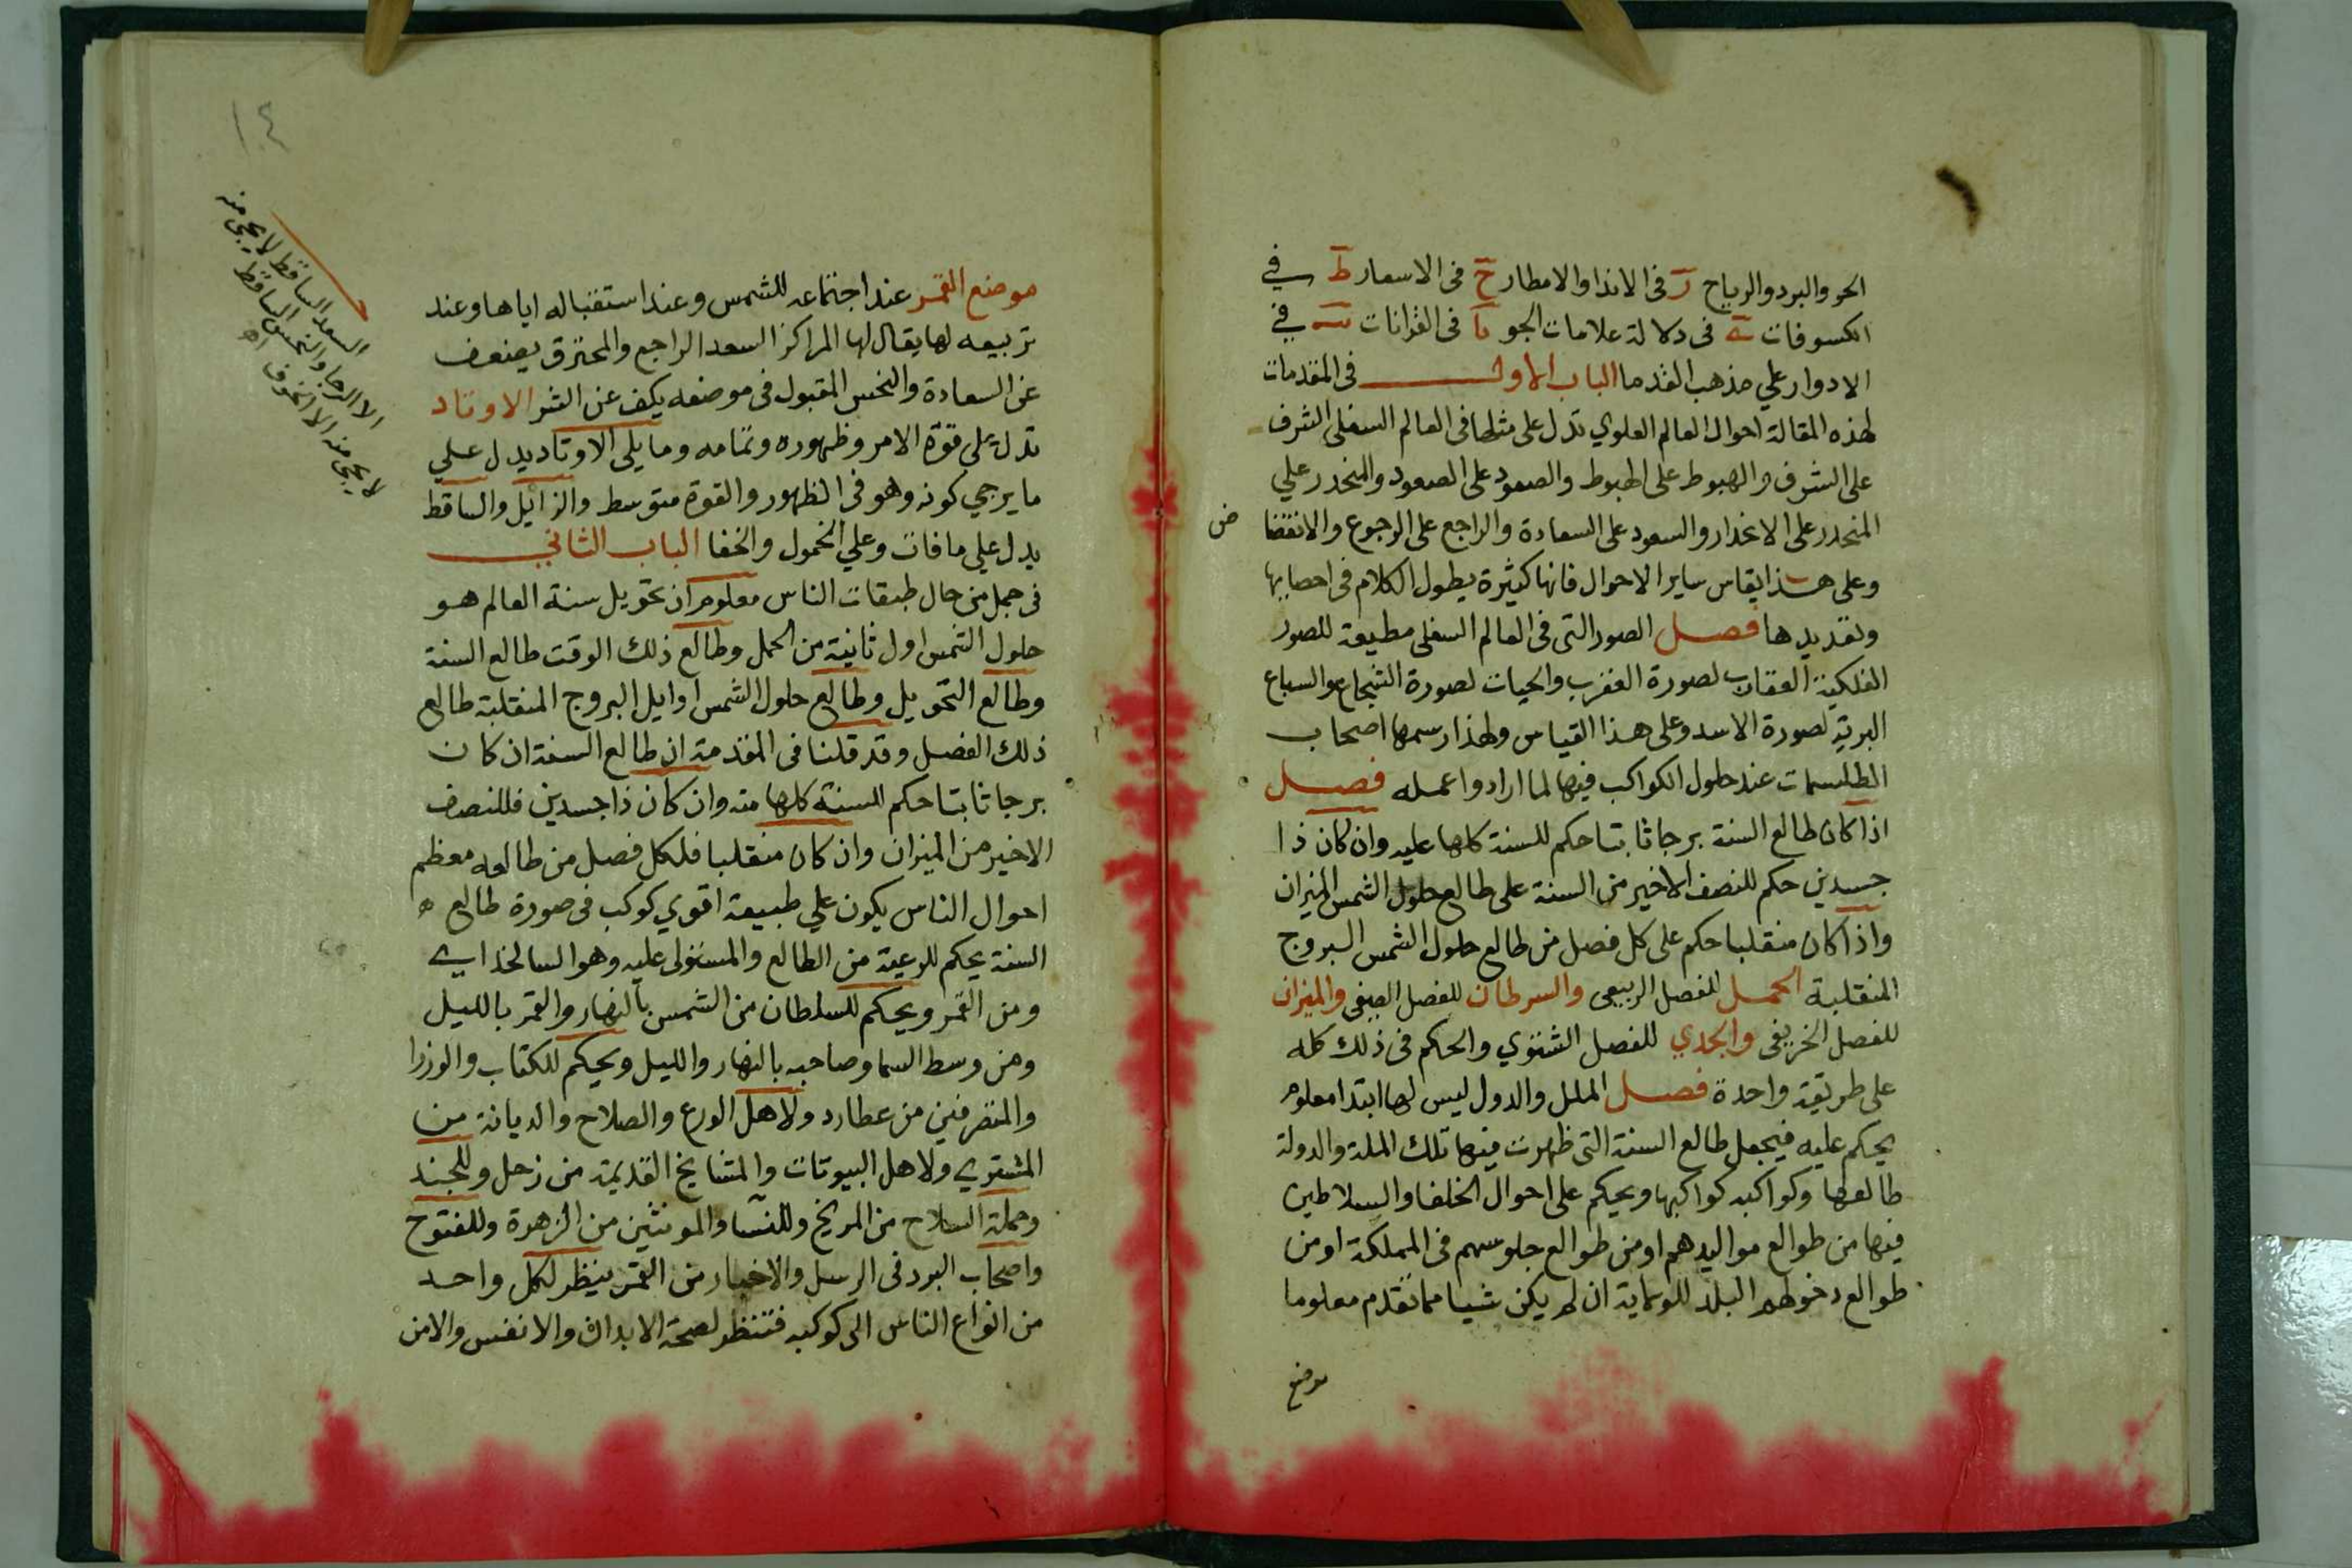 الحر والبرد والرياح ز فى الاندا والامطار ح فى الاسعار ط في
الكسوفات ى فى دلالة علامات الجو يا فى القرانات يب في
الادوار علي مذهب القدما الباب الاول فى المقدمات
لهذه المقالة احوال العالم العلوي تدل على مثلها فى العالم السفلى الشرف
على الشرف والهبوط على الهبوط والصعود على الصعود والمنحدر علي
المنحدر على الانحدار والسعود على السعادة والراجع على الرجوع والانتقضا
ض
وعلى هذا يقاس ساير الاحوال فانها كثيرة يطول الكلام فى احصايها
وتعديدها فصل الصور التى فى العالم السفلى مطيعة للصور
الفلكية العقارب لصورة العقرب والحيات لصورة الشجاع والسباع
البرية لصورة الاسد وعلى هذا القياس ولهذا رسمها اصحاب
الطلسمات عند حلول الكواكب فيها لما ارادوا عمله فصل
اذا كان طالع السنة برجا ثابتا حكم للسنة كلها عليه وان كان ذا
جسدين حكم للنصف الاخير من السنة على طالع حلول الشمس الميزان
واذا كان منقلبا حكم على كل فصل من طالع حلول الشمس البروج
المنقلبة الحمل للفصل الربيعى والسرطان للفصل الصيفى والميزان
للفصل الخريفى والجدي للفصل الشتوي والحكم فى ذلك كله
على طريقة واحدة فصل الملل والدول ليس لها ابتدا معلوم
يحكم عليه فيجعل طالع السنة التى ظهرت فيها تلك الملة والدولة
طالعها وكواكبه كواكبها ويحكم على احوال الخلفا والسلاطين
فيها من طوالع مواليدهم او من طوالع جلوسهم فى المملكة او من
طوالع دخولهم البلد للولاية ان لم يكن شيا مما تقدم معلوما
موضع
١٠٤
السعد الساقط لا يجى منه
الا الرجا والنحس الساقط
لا يجى منه الا الخوف اه
موضع القمر عند اجتماعه للشمس وعند استقباله اياها وعند
تربيعه لها يقال لها المراكز السعد الراجع والمحترق يضعف
عن السعادة والنحس المقبول فى موضعه يكف عن الشر الاوتاد
تدل على قوة الامر وظهوره وتمامه وما يلى الاوتاد يدل علي
ما يرجي كونه وهو فى الظهور والقوة متوسط والزايل والساقط
يدل علي ما فات وعلي الخمول والخفا الباب الثاني
فى جمل من حال طبقات الناس معلوم ان تحويل سنة العالم هو
حلول الشمس اول ثانية من الحمل وطالع ذلك الوقت طالع السنة
وطالع التحويل وطالع حلول الشمس اوايل البروج المنقلبة طالع
ذلك الفصل وقد قلنا فى المقدمة ان طالع السنة ان كان
برجا ثابتا حكم السنة كلها منه وان كان ذا جسدين فللنصف
الاخير من الميزان وان كان منقلبا فلكل فصل من طالعه معظم
احوال الناس يكون علي طبيعة اقوي كوكب فى صورة طالع
السنة يحكم للرعية من الطالع والمستولى عليه وهو السالخداى
ومن القمر ويحكم للسلطان من الشمس بالنهار والقمر بالليل
ومن وسط السما وصاحبه بالنهار والليل ويحكم للكتاب والوزرا
والمتصرفين من عطارد ولاهل الورع والصلاح والديانة من
المشتري ولاهل البيوتات والمشايخ القديمة من زحل وللجند
وحملة السلاح من المريخ وللنسا والمونثين من الزهرة وللفتوح
واصحاب البرد فى الرسل والاخبار من القمر ينظر لكل واحد
من انواع الناس الى كوكبه فتنظر لصحة الابدان والانفس والامن